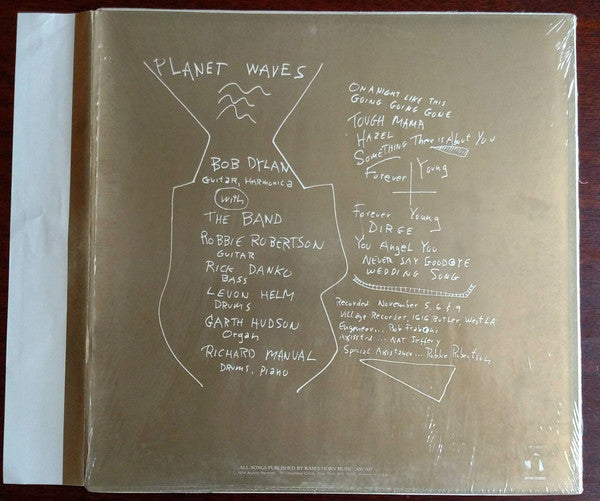 PLANET WAVES
BOB DYLAN
GUITAR, HARMONICA
with
THE BAND
ROBBIE ROBERTSON
GUITAR
RICK DANKO
BASS
LEVON HELM
DRUMS
GARTH HUDSON
Organ
RICHARD MANUAL
DRUMS, Piano
ON A NIGHT LIKE THIS
GOING GOING GONE
TOUGH MAMA
HAZEL
SOMETHING There is About You
Forever Young
Forever Young
DIRGE
You Angel You
NEVER SAY GOODBYE
WEDDING SONG
Recorded November 5, 6 & 9
Village Recorder, 1616 Butler, West LA
Engineer... Rob Fraboni
Assisted... NAT Jeffery
Special Assistance... Robbie Robertson
ALL SONGS PUBLISHED BY RAM'S HORN MUSIC ASCAP